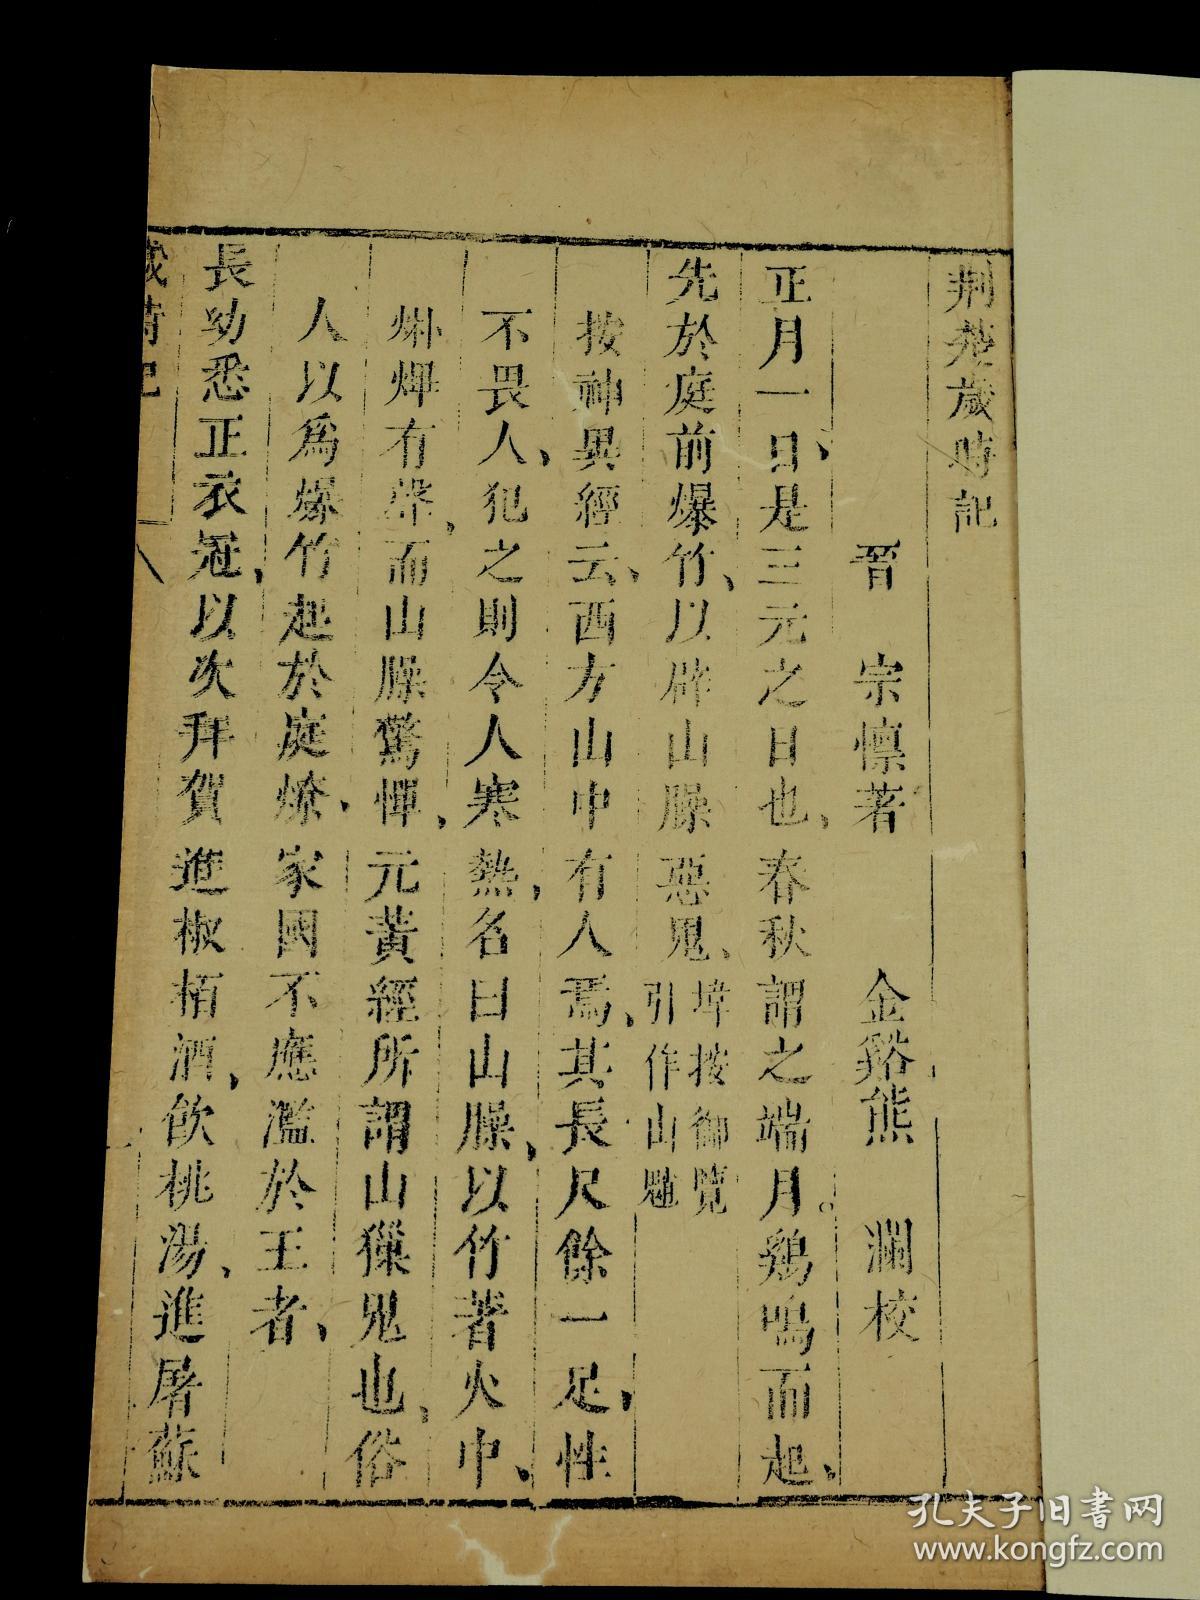 荆楚歲時記
晉　宗懍著　　金谿熊　澜校
正月一日、是三元之日也、春秋謂之端月。鷄鳴而起、
先於庭前爆竹、以辟山臊惡鬼、埻按御覽引作山魈
按神異經云、西方山中有人焉、其長尺餘一足、性
不畏人、犯之則令人寒熱、名曰山臊、以竹著火中、
烞熚有聲、而山臊驚憚、元黃經所謂山𤢖鬼也、俗
人以爲爆竹起於庭燎、家國不應濫於王者、
長幼悉正衣冠、以次拜賀進椒栢酒、飲桃湯、進屠蘇
歲時記
一
孔夫子旧书网
www.kongfz.com